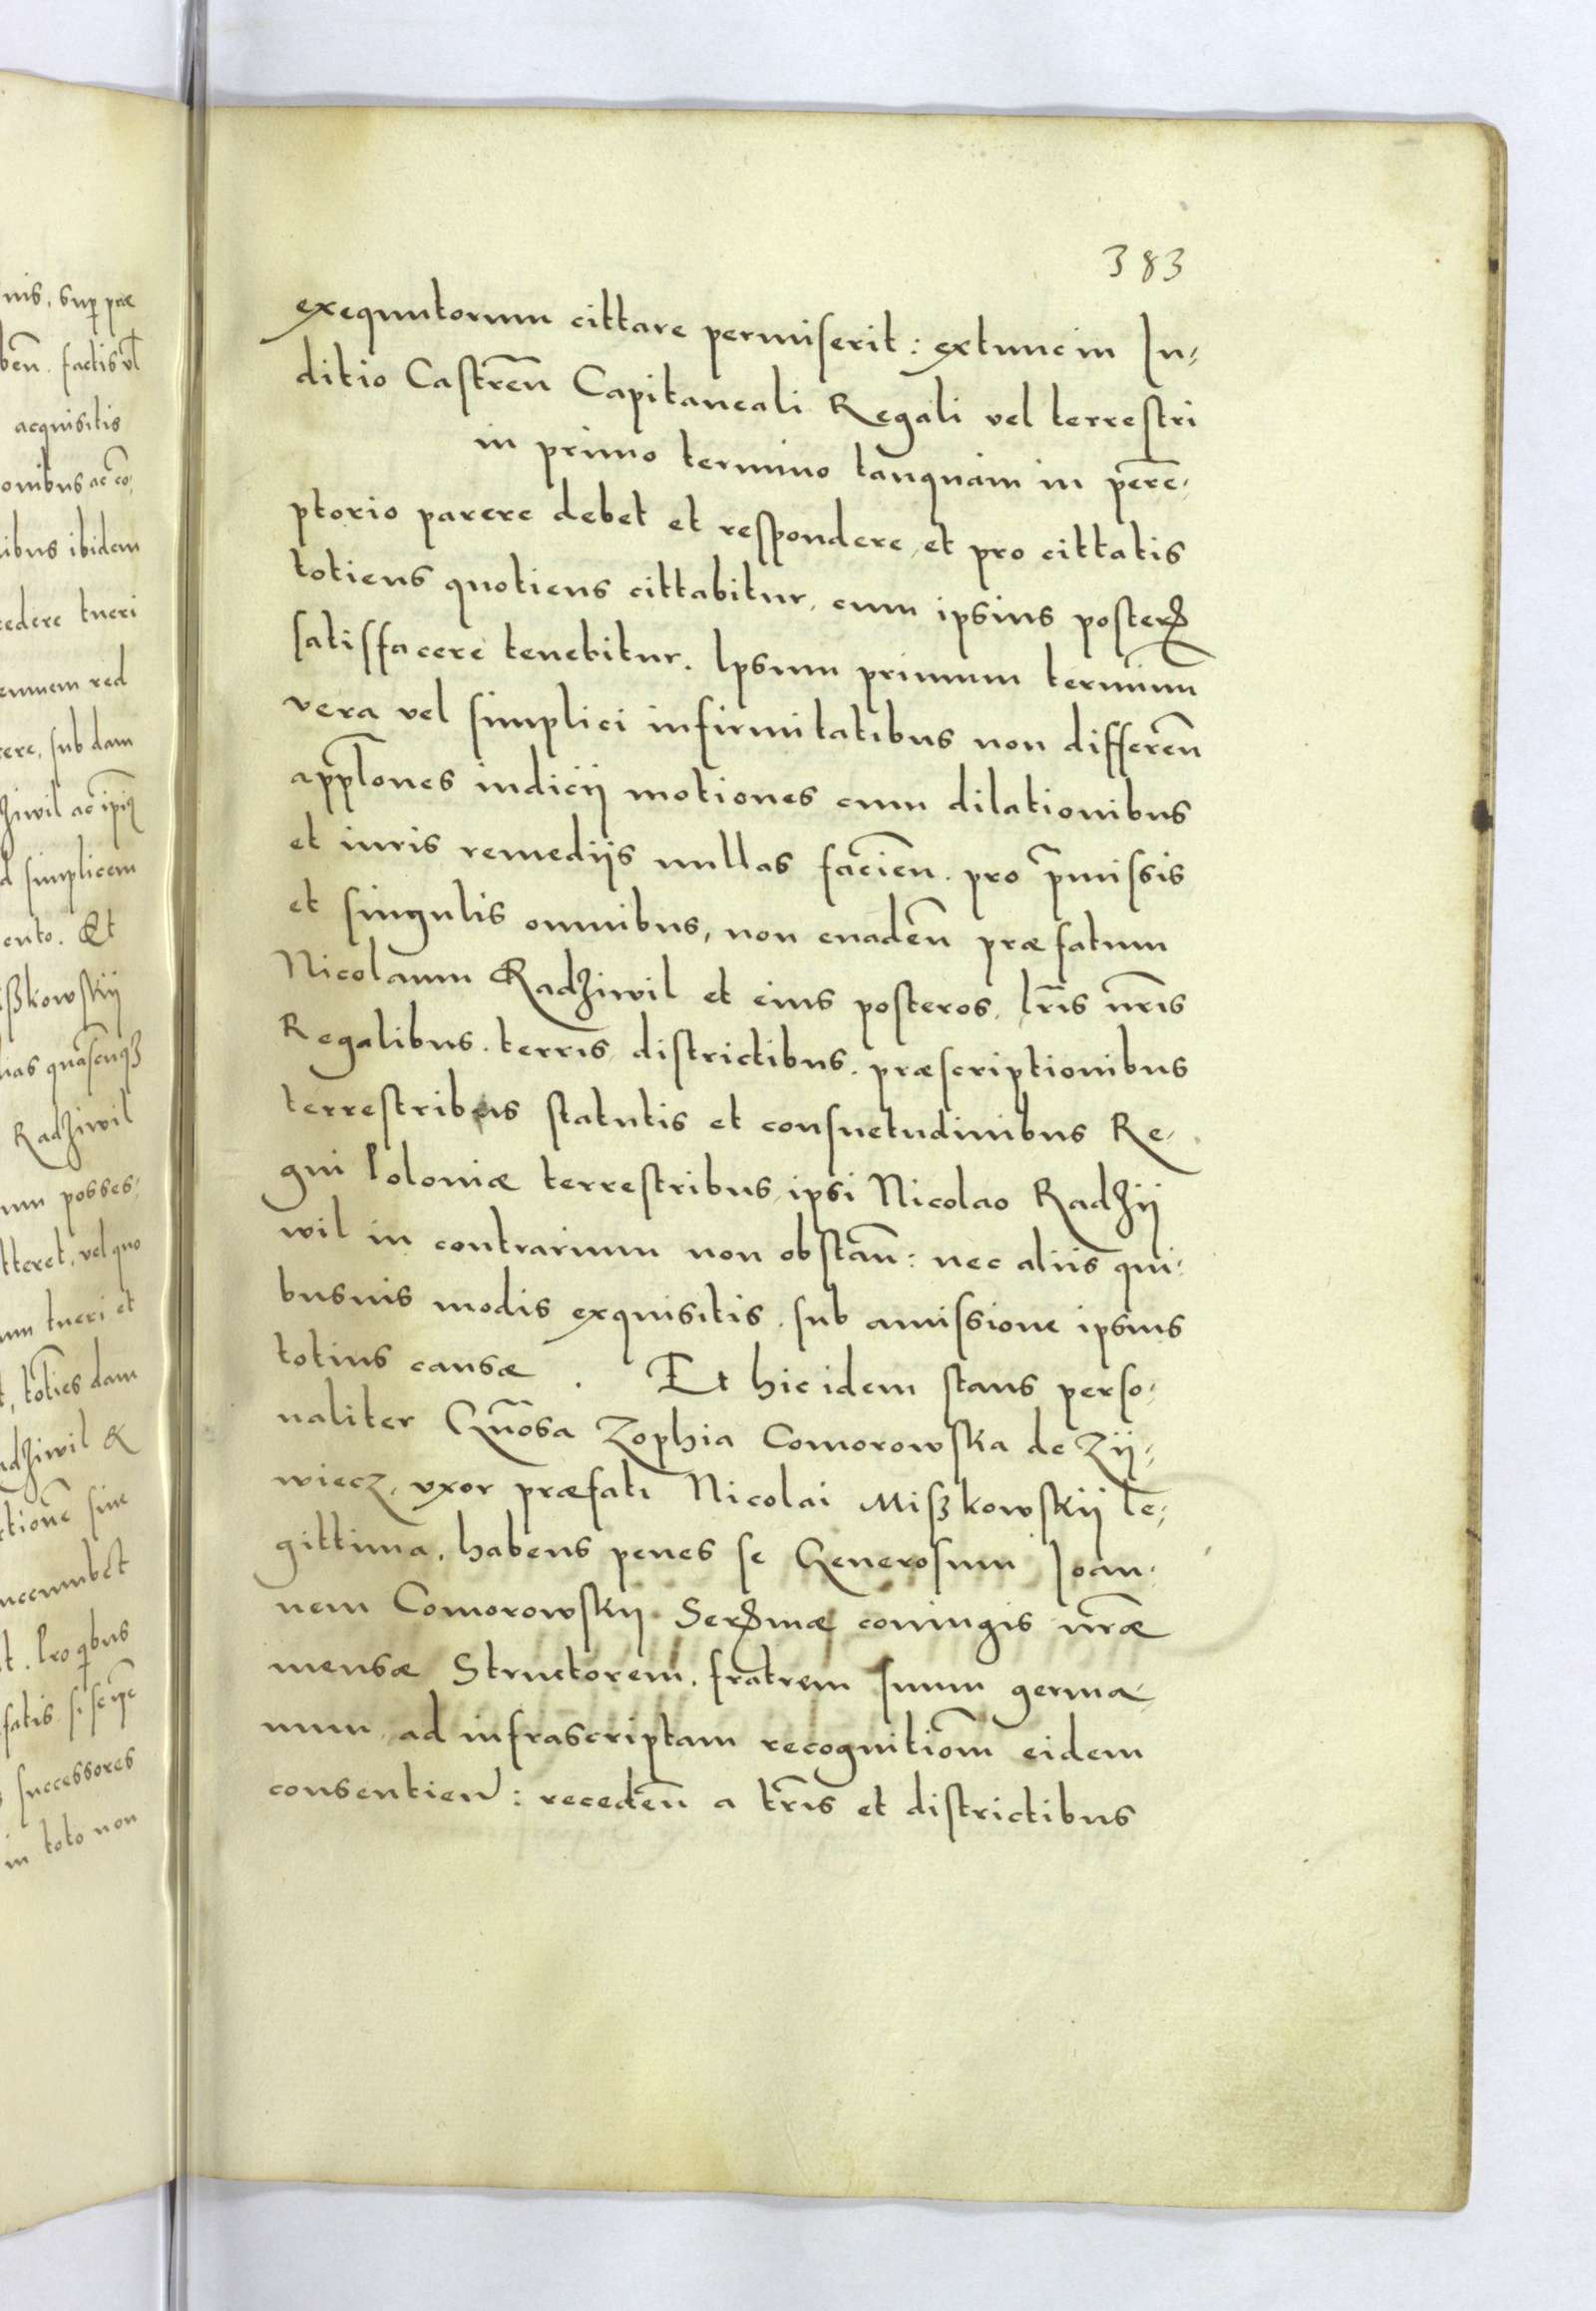 383
exequutorum cittare permiserit : extunc in Iu-
ditio Castreñ Capitaneali Regali vel terrestri
in primo termino tanquam in perē-
ptorio parere debet et respondere, et pro cittatis
totiens quotiens cittabitur, cum ipsius posterꝭ
satisfacere tenebitur. Ipsum primum terminū
vera vel simplici infirmitatibus non differeñ
app̃lones iudicij motiones cum dilationibus
et iuris remedijs nullas facieñ. pro p̃missis
et singulis omnibus, non euadeñ præfatum
Nicolaum Radziwil et eius posteros, lr̃is nr̃is
Regalibus. terris, districtibus. præscriptionibus
terrestribus statutis et consuetudinibus Re-
gni Poloniæ terrestribus, ipsi Nicolao Radzij
wil in contrarium non obstañ : nec aliis qui-
busuis modis exquisitis. sub amissione ipsius
totius causæ . Et hic idem stans perso-
naliter Gñosa Zophia Comorowska de Zij-
wiecz, vxor præfati Nicolai Mißkowskij le-
gittima, habens penes se Generosum Ioan-
nem Comorowskij Serꝭmæ coniugis nr̃æ
mensæ Structorem, fratrem suum germa-
num, ad infrascriptam recognitiom̃ eidem
consentieñ : recedeñ a tr̃is et districtibus
nis, sup præ
beñ. factis vl̃
acquisitis
onibus ac cō-
ibus ibidem
cedere tueri
emnem red
cere, sub dam
ziwil ac ipiꝰ
d simplicem
ento. Et
ißkowskij
ias quascūqꝫ
Radziwil
um posses-
tteret, vel quo
um tueri et
t, toties dam
adziwil &
ctionē siue
uccumbet
t. Pro qbus
fatis
successores
in toto non